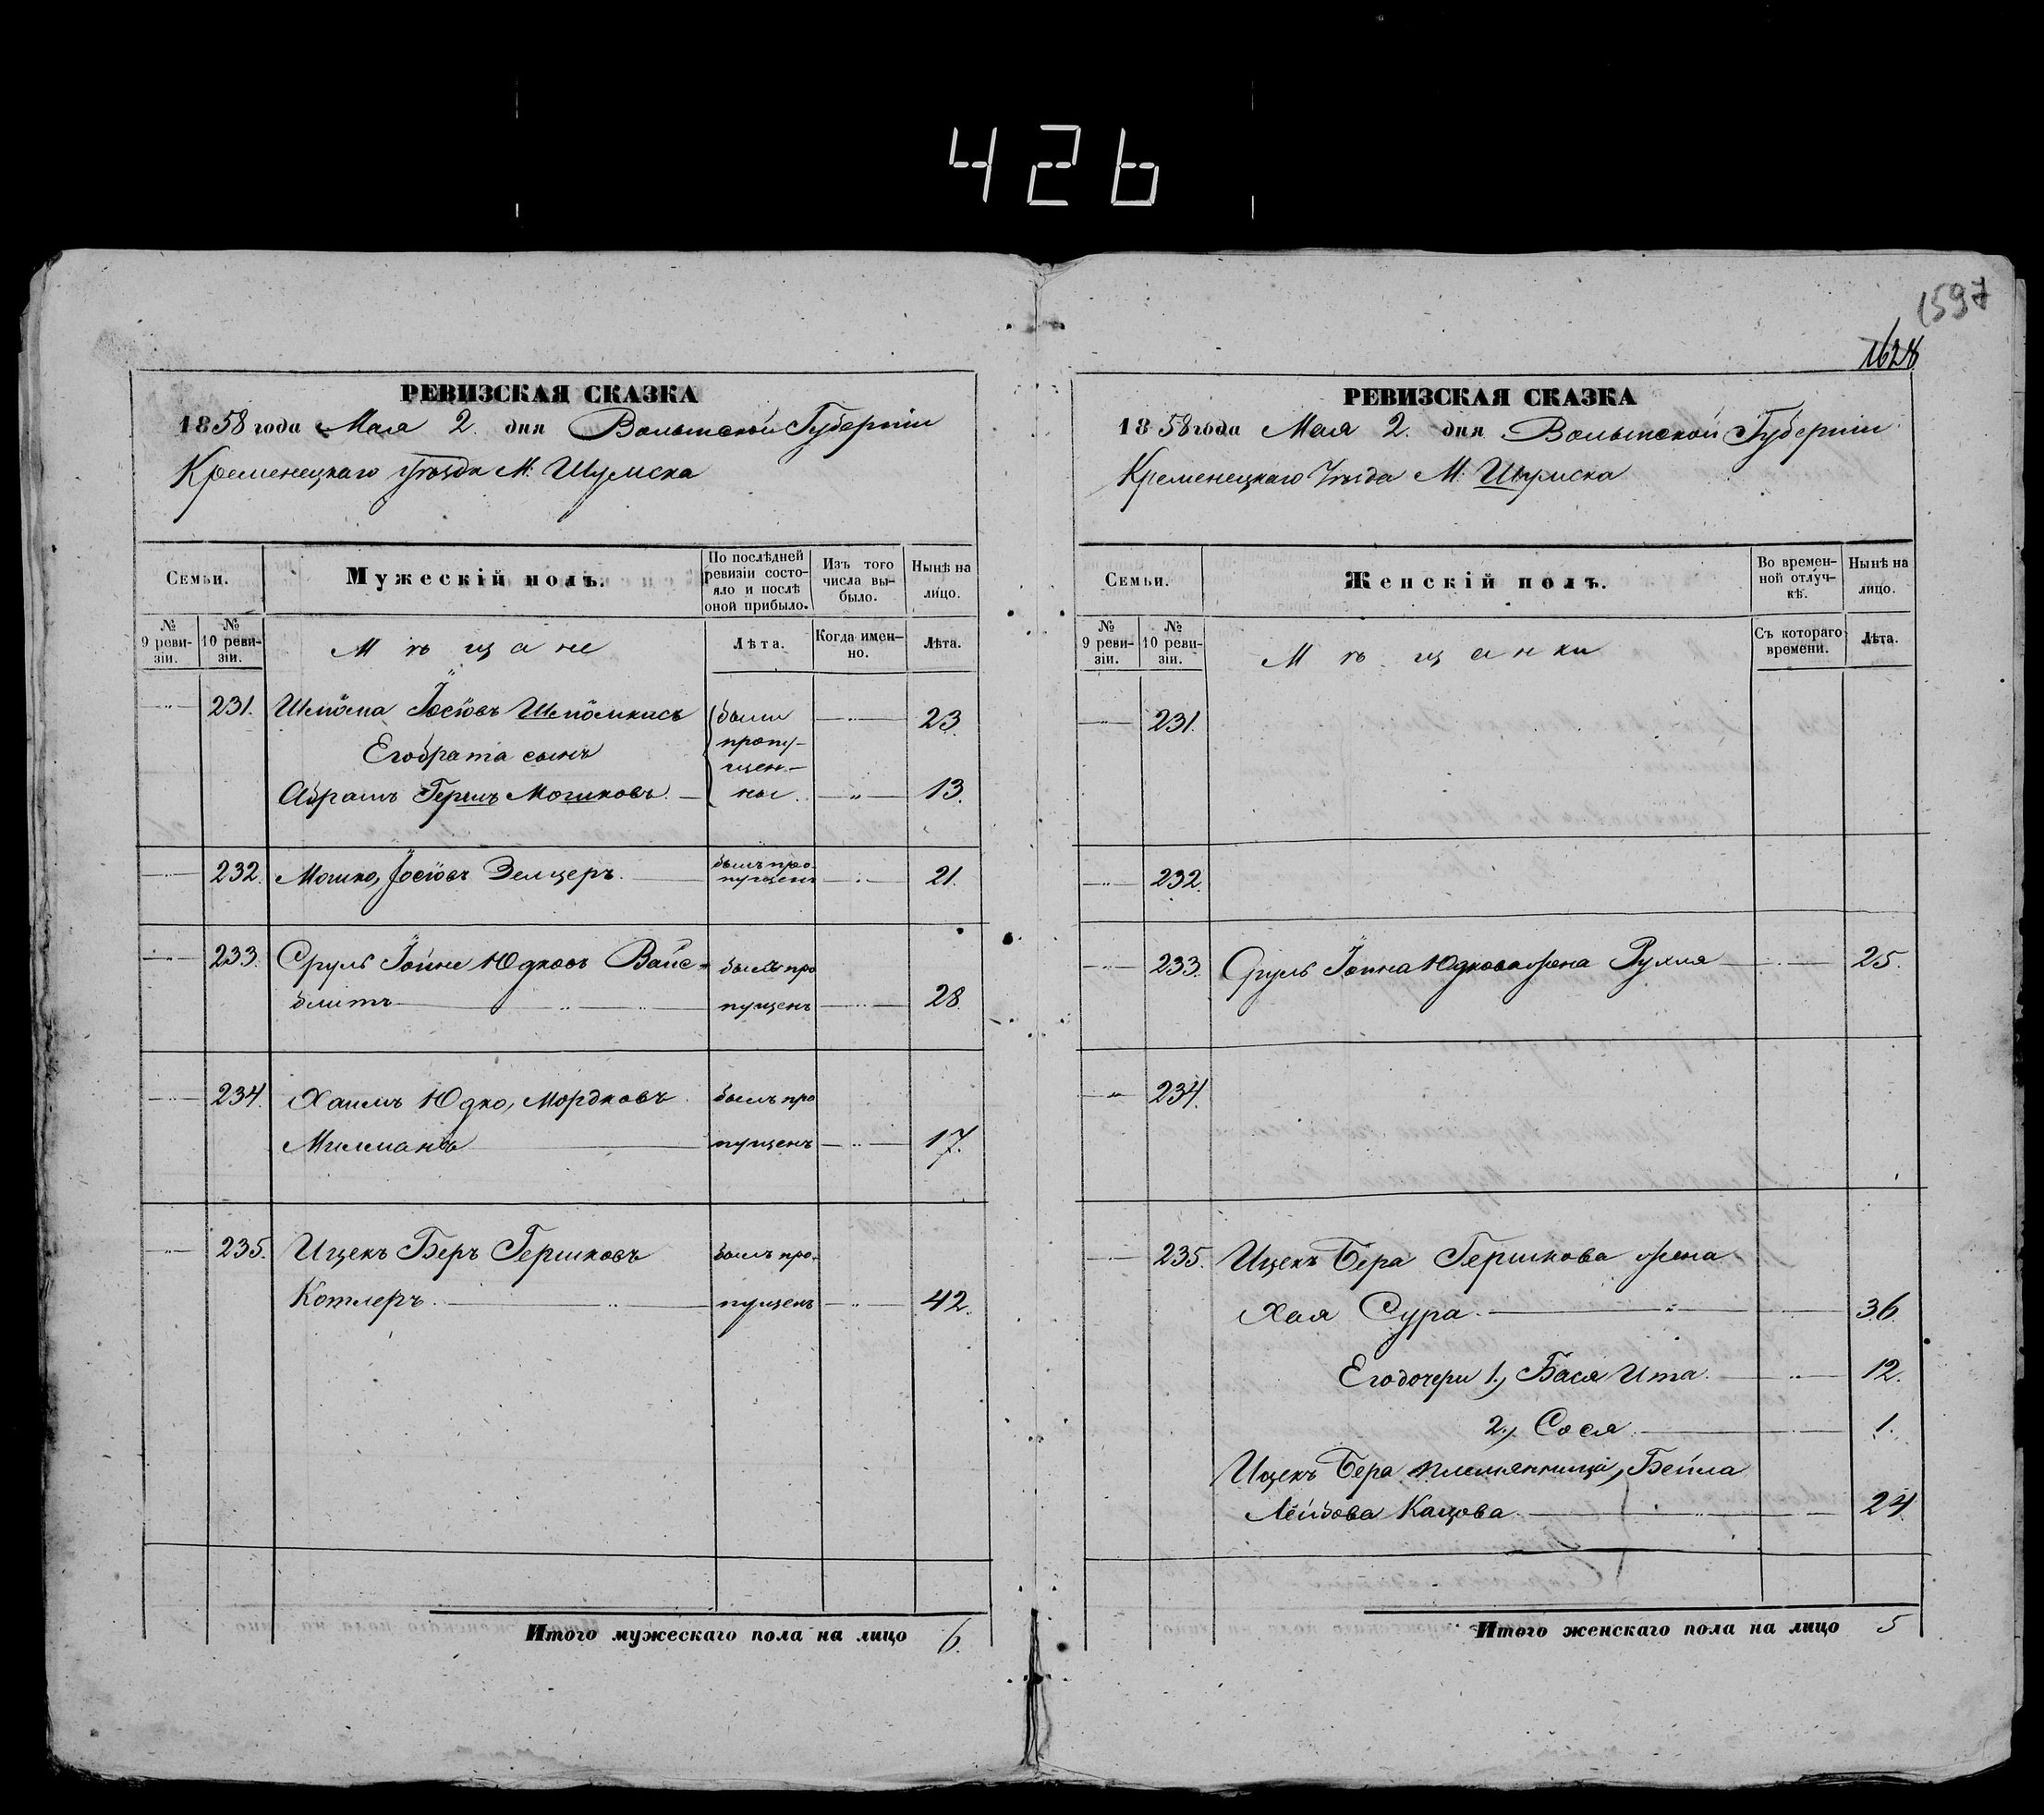 426
1597
1628
РЕВИЗСКАЯ СКАЗКА
1858 года Мая 2. дня Волынской Губерніи
Кременецкаго Уѣзда М. Шумска
Семьи.
Мужескій полъ.
По послѣдней ревизіи состояло и послѣ оной прибыло.
Изъ того числа выбыло.
Нынѣ на лицо.
№ 9 ревизіи.
№ 10 ревизіи.
Мѣщане
Лѣта.
Когда именно.
Лѣта.
231. Шліома Іосіовъ были 23
Его брата сынъ пропу-
щен-
Абрамъ Гершъ Мошковъ. ны. 13.
232. Мошко, Іосіовъ Зелцеръ. былъ про-
пущенъ 21.
233. Сруль Іойне Юдковъ Вайс- былъ про
блитъ пущенъ 28
234. Хаимъ Юдко, Мордковъ былъ про
Милманъ пущенъ 17.
235. Ицекъ Беръ Гершковъ былъ про-
Котлеръ. пущенъ 42.
Итого мужескаго пола на лицо 6.
РЕВИЗСКАЯ СКАЗКА
1858 года Мая 2. дня Волынской Губерніи
Кременецкаго Уѣзда М. Шумска
Семьи.
Женскій полъ.
Во временной отлучкѣ.
Нынѣ на лицо.
№ 9 ревизіи.
№ 10 ревизіи.
Мѣщанки
Съ котораго времени.
Лѣта.
231.
232.
233. Сруль Іойна Юдкова жена Рухля 25.
234.
235. Ицекъ Бера Гершкова жена
Хая Сура. 36.
Его дочери 1., Бася Ита. 12.
2., Сося. 1.
Ицекъ Бера племянница, Бейла
Лейбова Кацова. 24
Итого женскаго пола на лицо 5